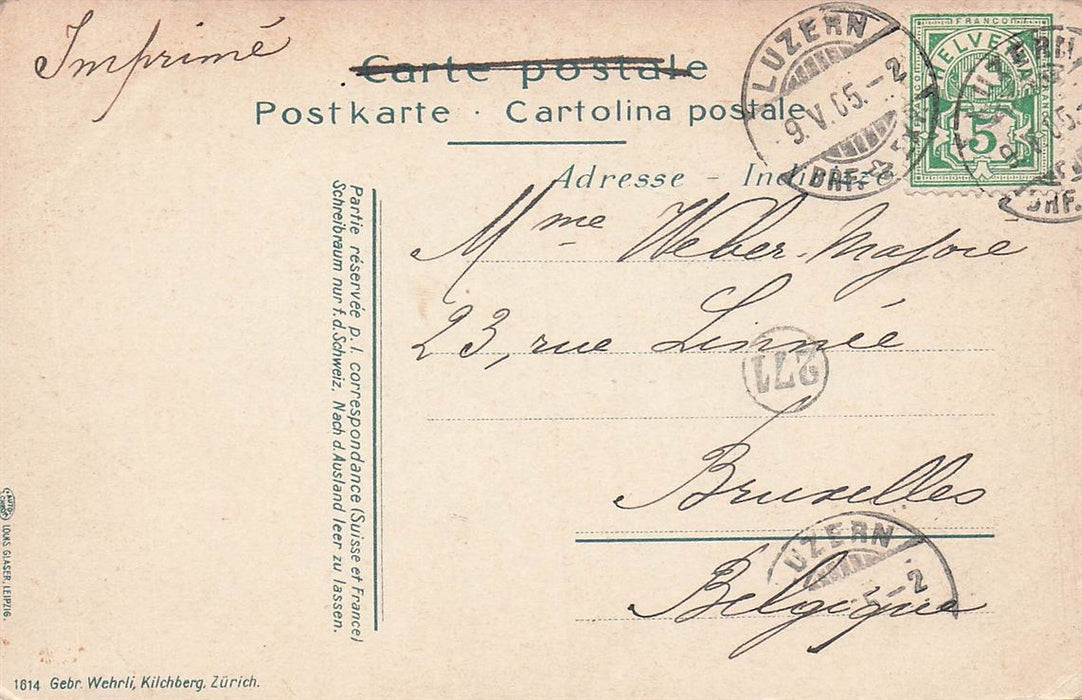 Imprimé
Carte postale
Postkarte · Cartolina postale
Adresse – Indirizzo
FRANCO
HELVETIA
5
LUZERN
9.V.05.–2
BRF.
Mme Weber-Majoie
23, rue Linnée
277
Bruxelles
Belgique
UZERN
5–2
Partie réservée p. l. correspondance (Suisse et France)
Schreibraum nur f. d. Schweiz. Nach d. Ausland leer zu lassen.
LOUIS GLASER, LEIPZIG.
1614 Gebr. Wehrli, Kilchberg, Zürich.